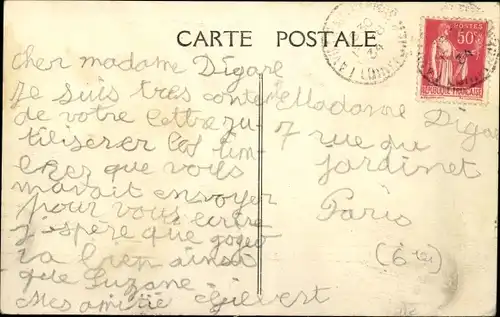 CARTE POSTALE
50c
REPUBLIQUE FRANÇAISE
30
34
cher madame Digare
Je suis tres contente
de votre lettre ju
tiliserer les tim
brer que vous
mavait envoyer
pour vous ecrire
j'espère que gogeo
va bien ainsi
que Suzane
Mes amitié Gilvert
Madame Digar
7 rue du
jardinet
Paris
(6 te)